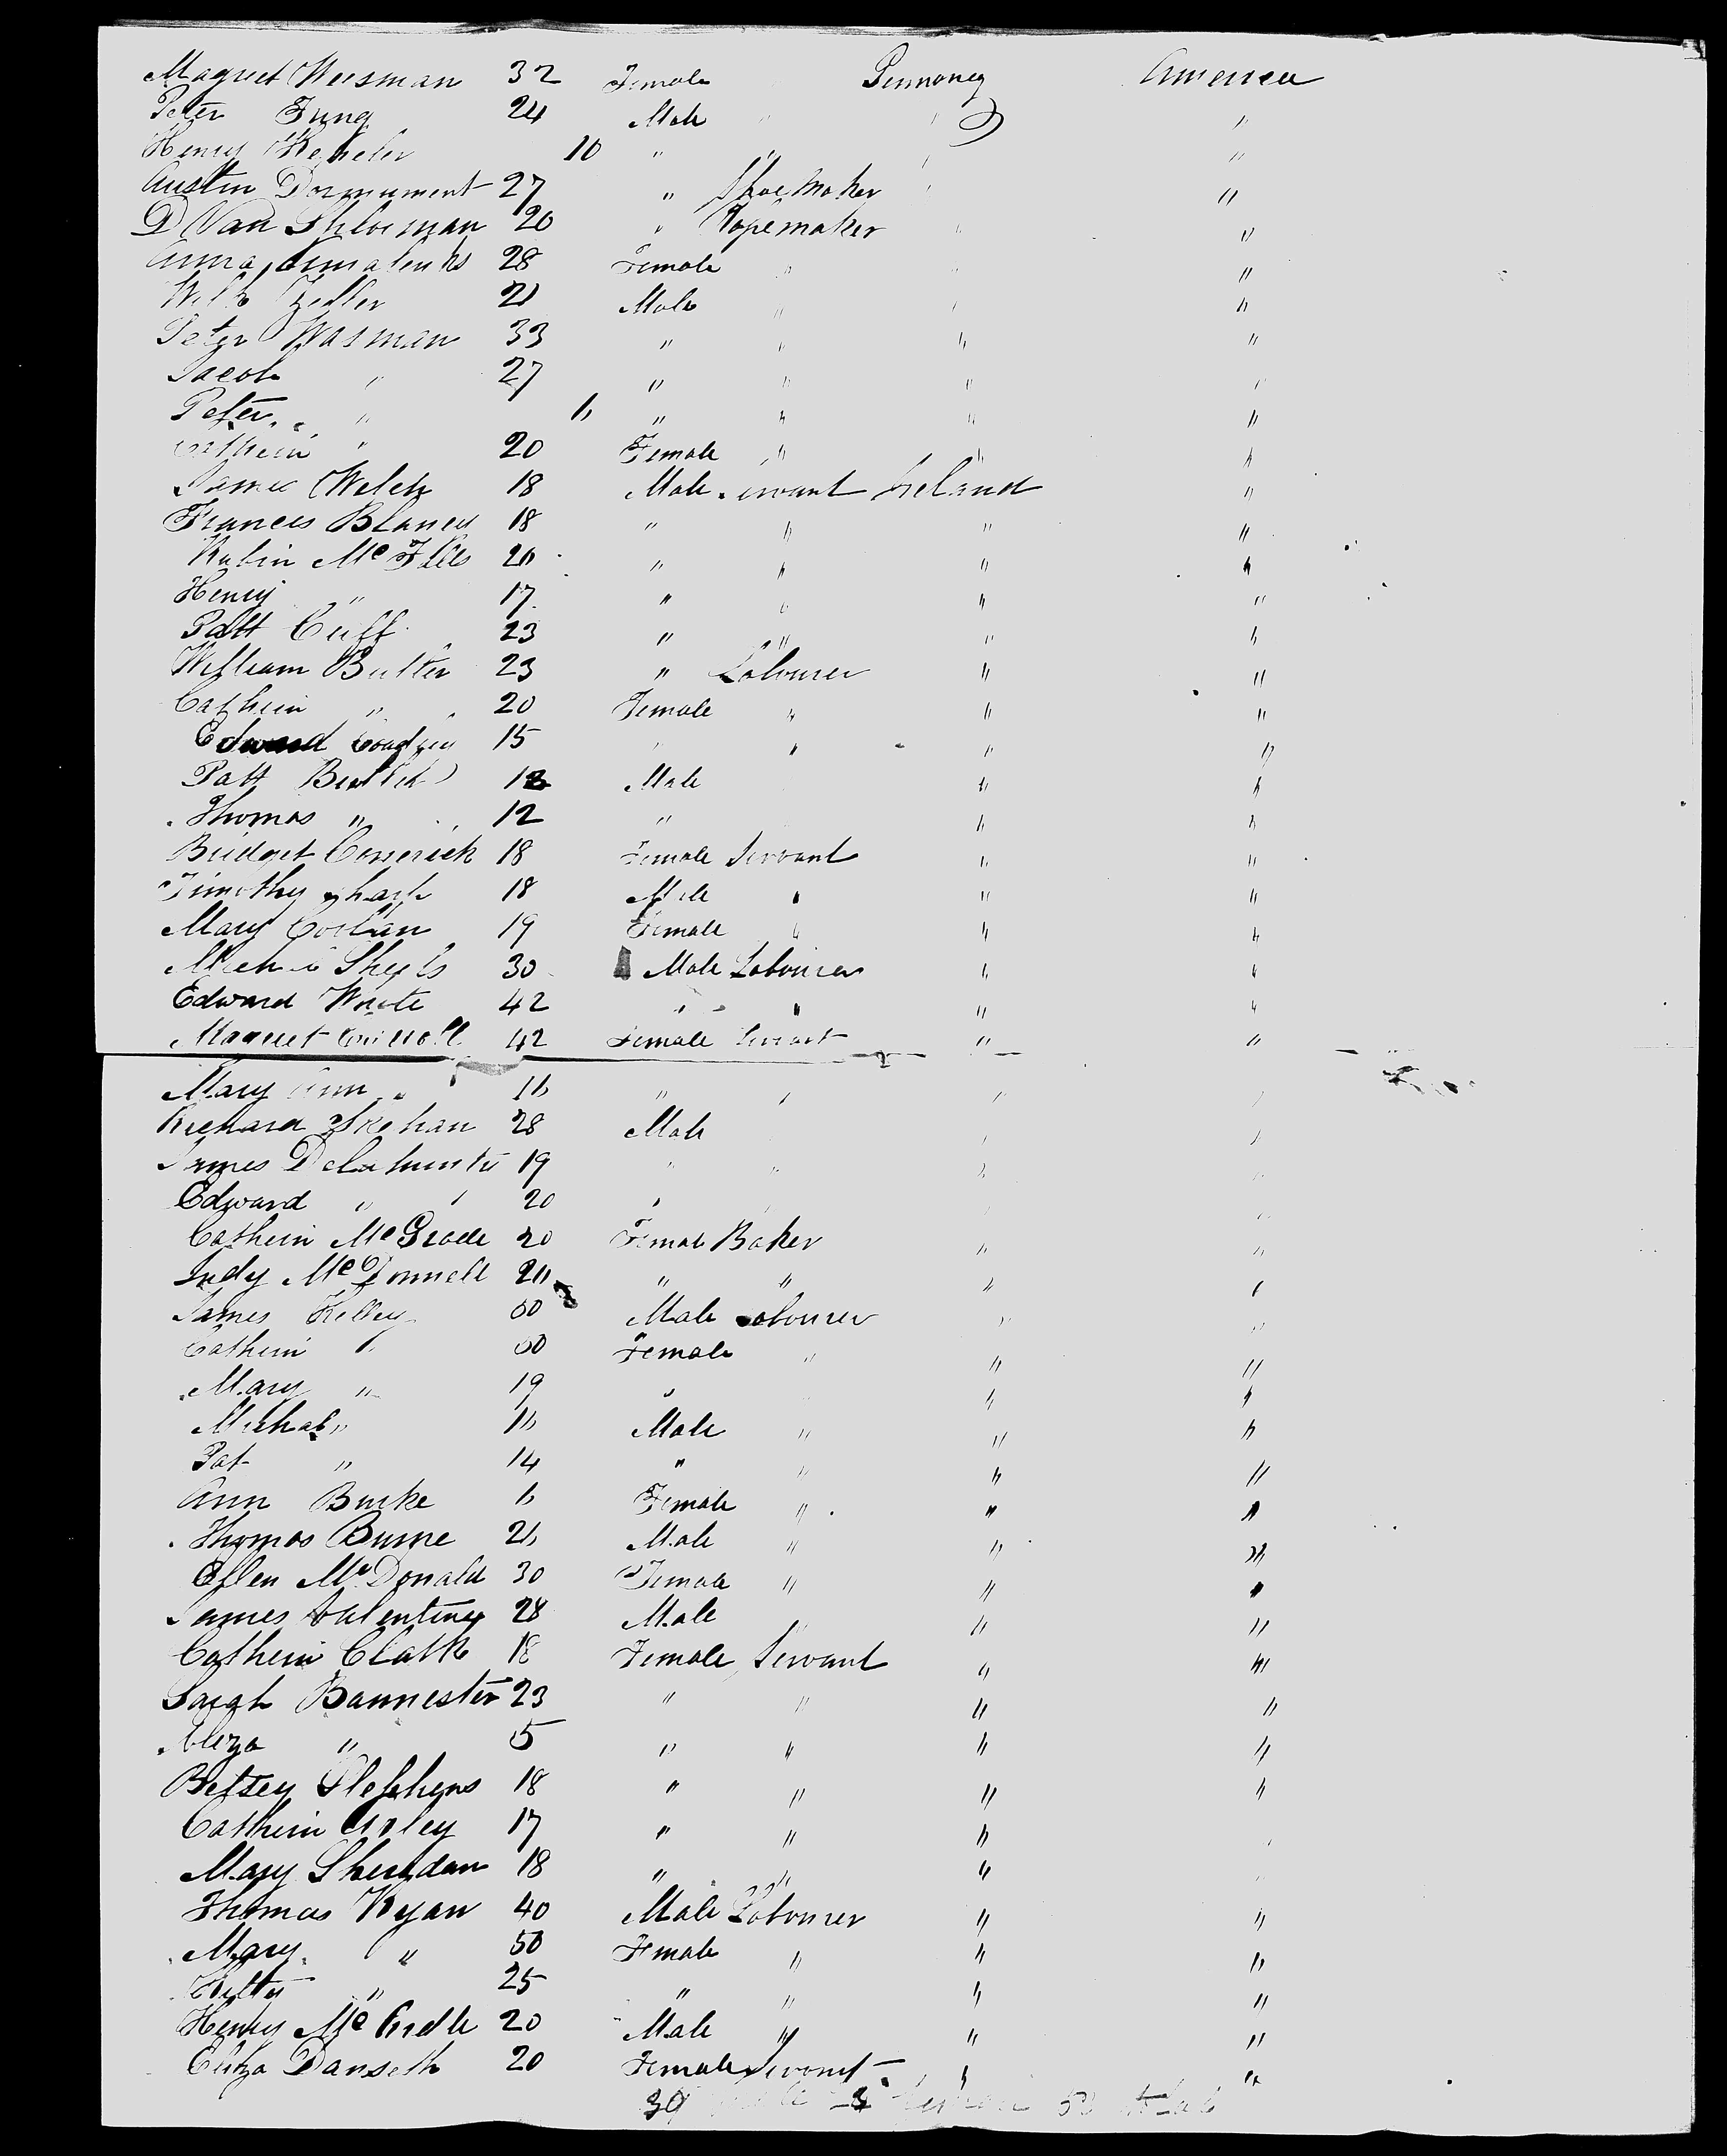 Magriet Weisman 32 Female Germaney America
Peter Jung 24 Male " " "
Henry 10 " " " "
Austin Dormument 27 " Shoe Maker " "
D Van Shloeman 20 " Ropemaker " "
Anna 28 Female " " "
Will Zedler 21 Male " " "
Peter Wasman 33 " " " "
Jacob " 27 " " " "
Peter " " " " "
Cathein " 20 Female " " "
James Welch 18 Male Servant Ireland "
Frances Blaney 18 " " " "
Robin Mc 20 " " " "
Henry " 17 " " " "
Patt Cuff 23 " " " "
William Butler 23 " Labourer " "
Cathein " 20 Female " " "
Edward 15 " " " "
Patt Male " "
Thomas " 12 " " "
Bridget 18 Female Servant " "
Timothy 18 Male " " "
Mary 19 Female " " "
30 Male Labourer " "
Edward White 42 " " " "
Magriet 42 Female Servant " "
Mary Ann " " " " "
Richard Skehan 28 Male " "
James Delahunty 19 " " " "
Edward " 20 " " " "
Cathein Mc Grade 20 Female Baker " "
Judy Mc Donnell 20 " " " "
James Kelley 50 Male Labourer " "
Cathein " 50 Female " " "
Mary " 19 " " "
Michal " Male " " "
Pat " 14 " " " "
Ann Burke Female " " "
Thomas Burne Male " " "
Ellen Mc Donald 30 Female " " "
James Valentine 28 Male " " "
Cathein Clark 18 Female Servant " "
Saragh Bannester 23 " " " "
Aliza " 5 " " " "
Betsey Stephens 18 " " " "
Cathein Arley 17 " " " "
Mary Sheridan 18 " " "
Thomas Ryan 40 Male Labourer " "
Mary " 50 Female " " "
Kitty " 25 " " " "
Henry Mc Ardle 20 Male " " "
Eliza Danseth 20 Female Servant " "
39